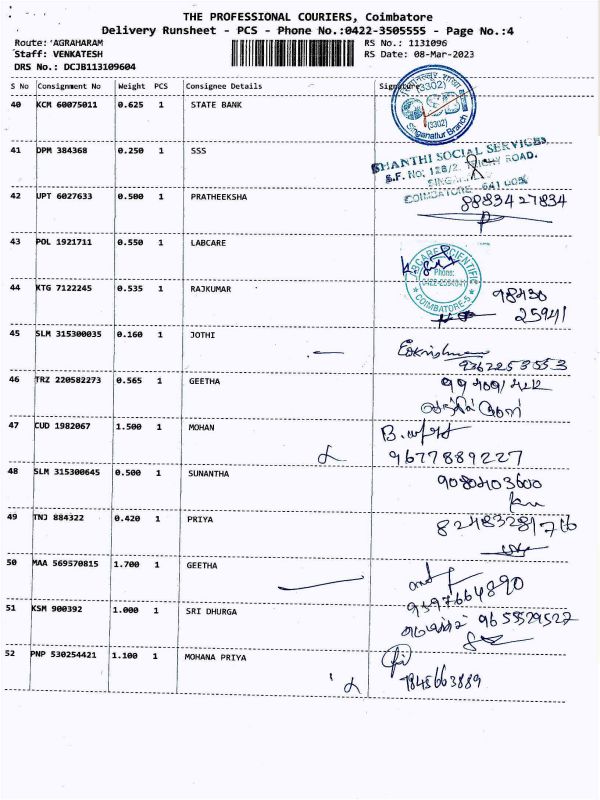 THE PROFESSIONAL COURIERS, Coimbatore
Delivery Runsheet - PCS - Phone No.:0422-3505555 - Page No.:4
Route: AGRAHARAM RS No.: 1131096
Staff: VENKATESH RS Date: 08-Mar-2023
DRS No.: DCJB113109604
S No Consignment No Weight PCS Consignee Details Signature
40 KCM 60075011 0.625 1 STATE BANK
(3302)
(3302)
Singanallur Branch
41 DPM 384368 0.250 1 SSS
SHANTHI SOCIAL SERVICES
S.F. No; 128/2, TRICHY ROAD.
COIMBATORE
42 UPT 6027633 0.500 1 PRATHEEKSHA
8883427834
43 POL 1921711 0.550 1 LABCARE
LABCARE SCIENTIFIC
Phone:
COIMBATORE-5
44 KTG 7122245 0.535 1 RAJKUMAR
98430
25941
45 SLM 315300035 0.160 1 JOTHI
9362253553
46 TRZ 220582273 0.565 1 GEETHA
47 CUD 1982067 1.500 1 MOHAN
9677889227
48 SLM 315300645 0.500 1 SUNANTHA
9080403600
49 TNJ 884322 0.420 1 PRIYA
50 MAA 569570815 1.700 1 GEETHA
9597664890
51 KSM 900392 1.000 1 SRI DHURGA
9655529527
52 PNP 530254421 1.100 1 MOHANA PRIYA
7845663889